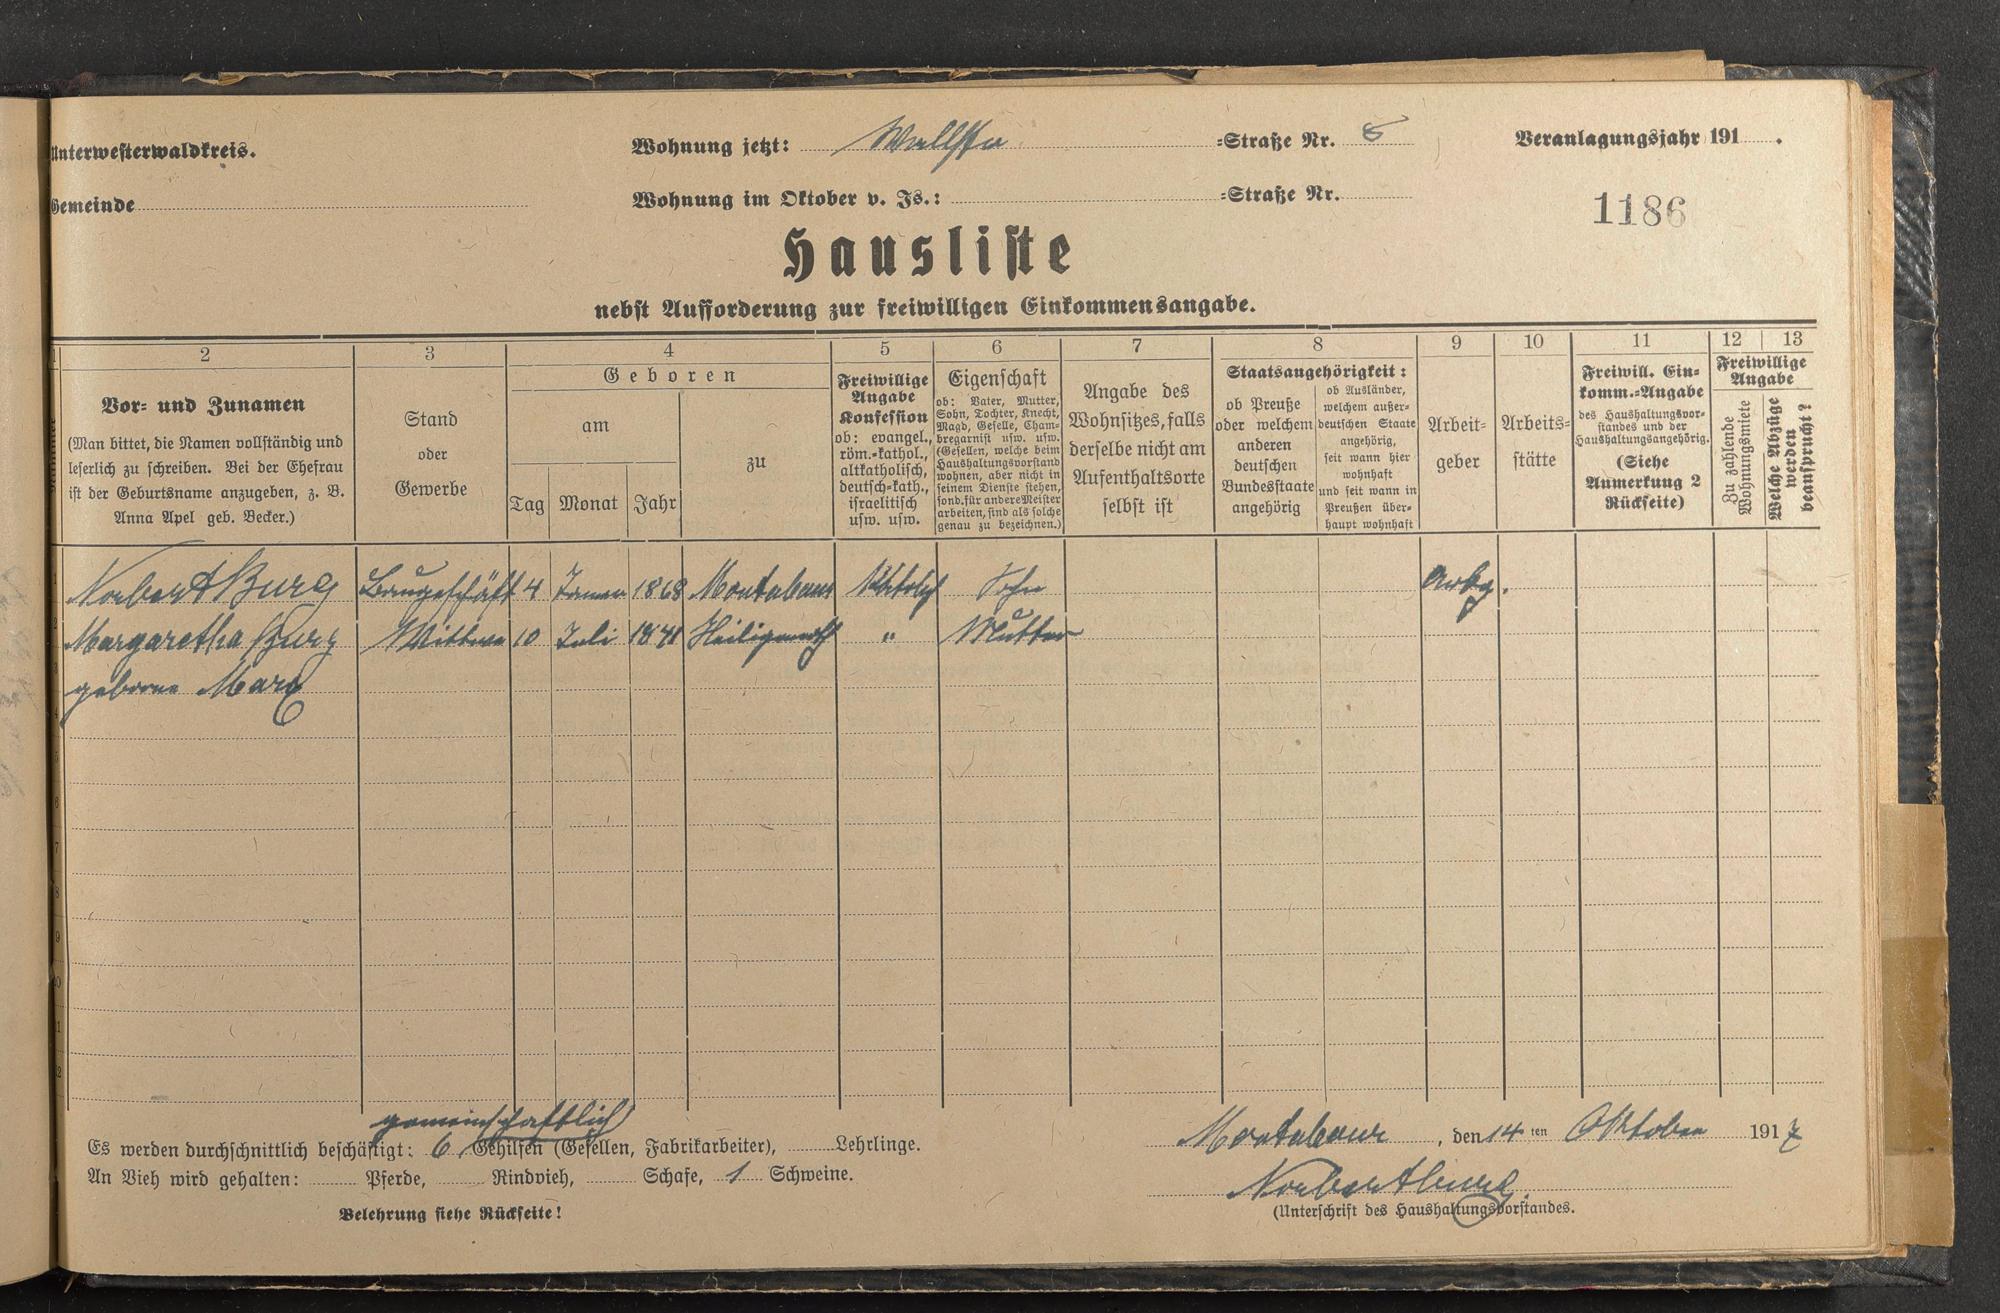 Unterwesterwaldkreis.
Wohnung jetzt: Wallstr -Straße Nr. 8
Veranlagungsjahr 191 .
Gemeinde
Wohnung im Oktober v. Js.: -Straße Nr.
1186
Hausliste
nebst Aufforderung zur freiwilligen Einkommensangabe.
1 2 3 4 5 6 7 8 9 10 11 12 13
Vor- und Zunamen
(Man bittet, die Namen vollständig und
leserlich zu schreiben. Bei der Ehefrau
ist der Geburtsname anzugeben, z. B.
Anna Apel geb. Becker.)
Stand
oder
Gewerbe
Geboren
am
Tag Monat Jahr
zu
Freiwillige
Angabe
Konfession
ob: evangel.,
röm.-kathol.,
altkatholisch,
deutsch-kath.,
israelitisch
usw. usw.
Eigenschaft
ob: Vater, Mutter,
Sohn, Tochter, Knecht,
Magd, Geselle, Cham-
bregarnist usw. usw.
(Gesellen, welche beim
Haushaltungsvorstand
wohnen, aber nicht in
seinem Dienste stehen,
sond. für andere Meister
arbeiten, sind als solche
genau zu bezeichnen.)
Angabe des
Wohnsitzes, falls
derselbe nicht am
Aufenthaltsorte
selbst ist
Staatsangehörigkeit:
ob Preuße
oder welchem
anderen
deutschen
Bundesstaate
angehörig
ob Ausländer,
welchem außer-
deutschen Staate
angehörig,
seit wann hier
wohnhaft
und seit wann in
Preußen über-
haupt wohnhaft
Arbeit-
geber
Arbeits-
stätte
Freiwill. Ein-
komm.-Angabe
des Haushaltungsvor-
standes und der
Haushaltungsangehörig.
(Siehe
Anmerkung 2
Rückseite)
Freiwillige
Angabe
Zu zahlende
Wohnungsmiete
Welche Abzüge
werden
beansprucht?
Norbert Burg Baugeschäft 4 Januar 1868 Montabaur Kathol Sohn Arbg.
Margaretha Burg Wittwe 10 Juli 1841 Heiligenroth " Mutter
geborne Marx
gemeinschaftlich
Es werden durchschnittlich beschäftigt: 6 Gehilfen (Gesellen, Fabrikarbeiter), Lehrlinge.
An Vieh wird gehalten: Pferde, Rindvieh, Schafe, 1 Schweine.
Belehrung siehe Rückseite!
Montabaur, den 14 ten Oktober 1917
Norbert Burg.
(Unterschrift des Haushaltungsvorstandes.